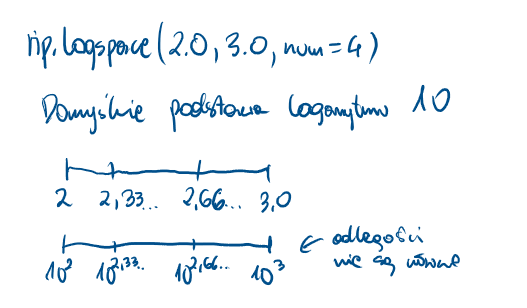 np.logspace(2.0, 3.0, num=4)
Domyślnie podstawa logarytmu 10
2 2,33... 2,66... 3,0
10² 10^2,33.. 10^2,66.. 10³ ← odległości
nie są równe